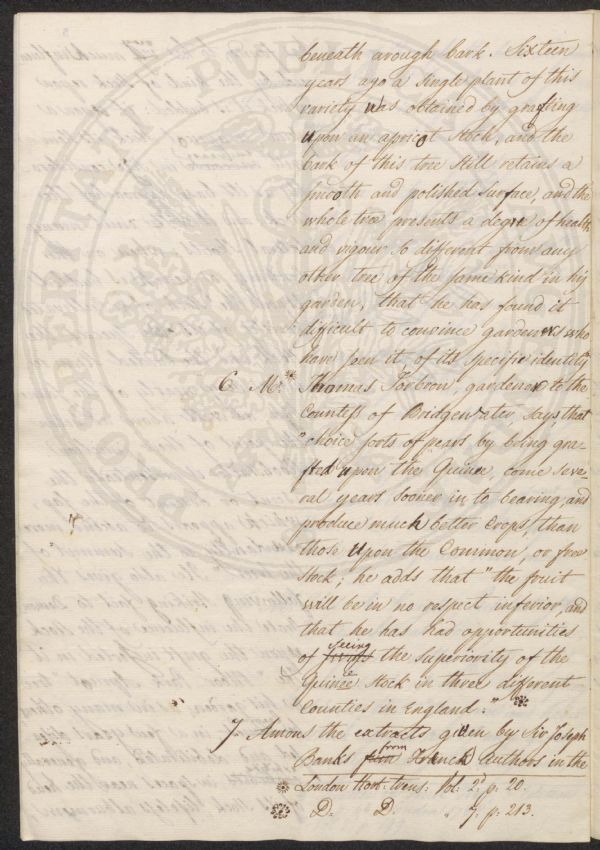 beneath arough bark. Sixteen
years ago a single plant of this
variety was obtained by grafting
upon an apricot stock, and the
bark of this tree still retains a
smooth and polished surface, and the
whole tree presents a degre of health
and vigour so different from any
other tree of the same kind in his
garden, that he has found it
dificult to convince gardeners who
have seen it, of its specific identity"
6 Mr.* Thomas Torbron, gardener to the
Countess of Bridgewater, says, that
"choice sorts of pears by being gra-
fted upon the Quince, come seve-
ral years sooner in to bearing, and
produce much better crops, than
those upon the Common, or free
stock; he adds that "the fruit
will be in no respect inferior, and
that he has had opportunities
of seeing the superiority of the
Quince stock in three different
Counties in England." *
7. Amons the extracts given by Sir Joseph
Banks from French authors in the
* London Hort: trans: Vol: 2d p. 20.
* D. D. " 7. p. 213.
PROSPERITATI PUB